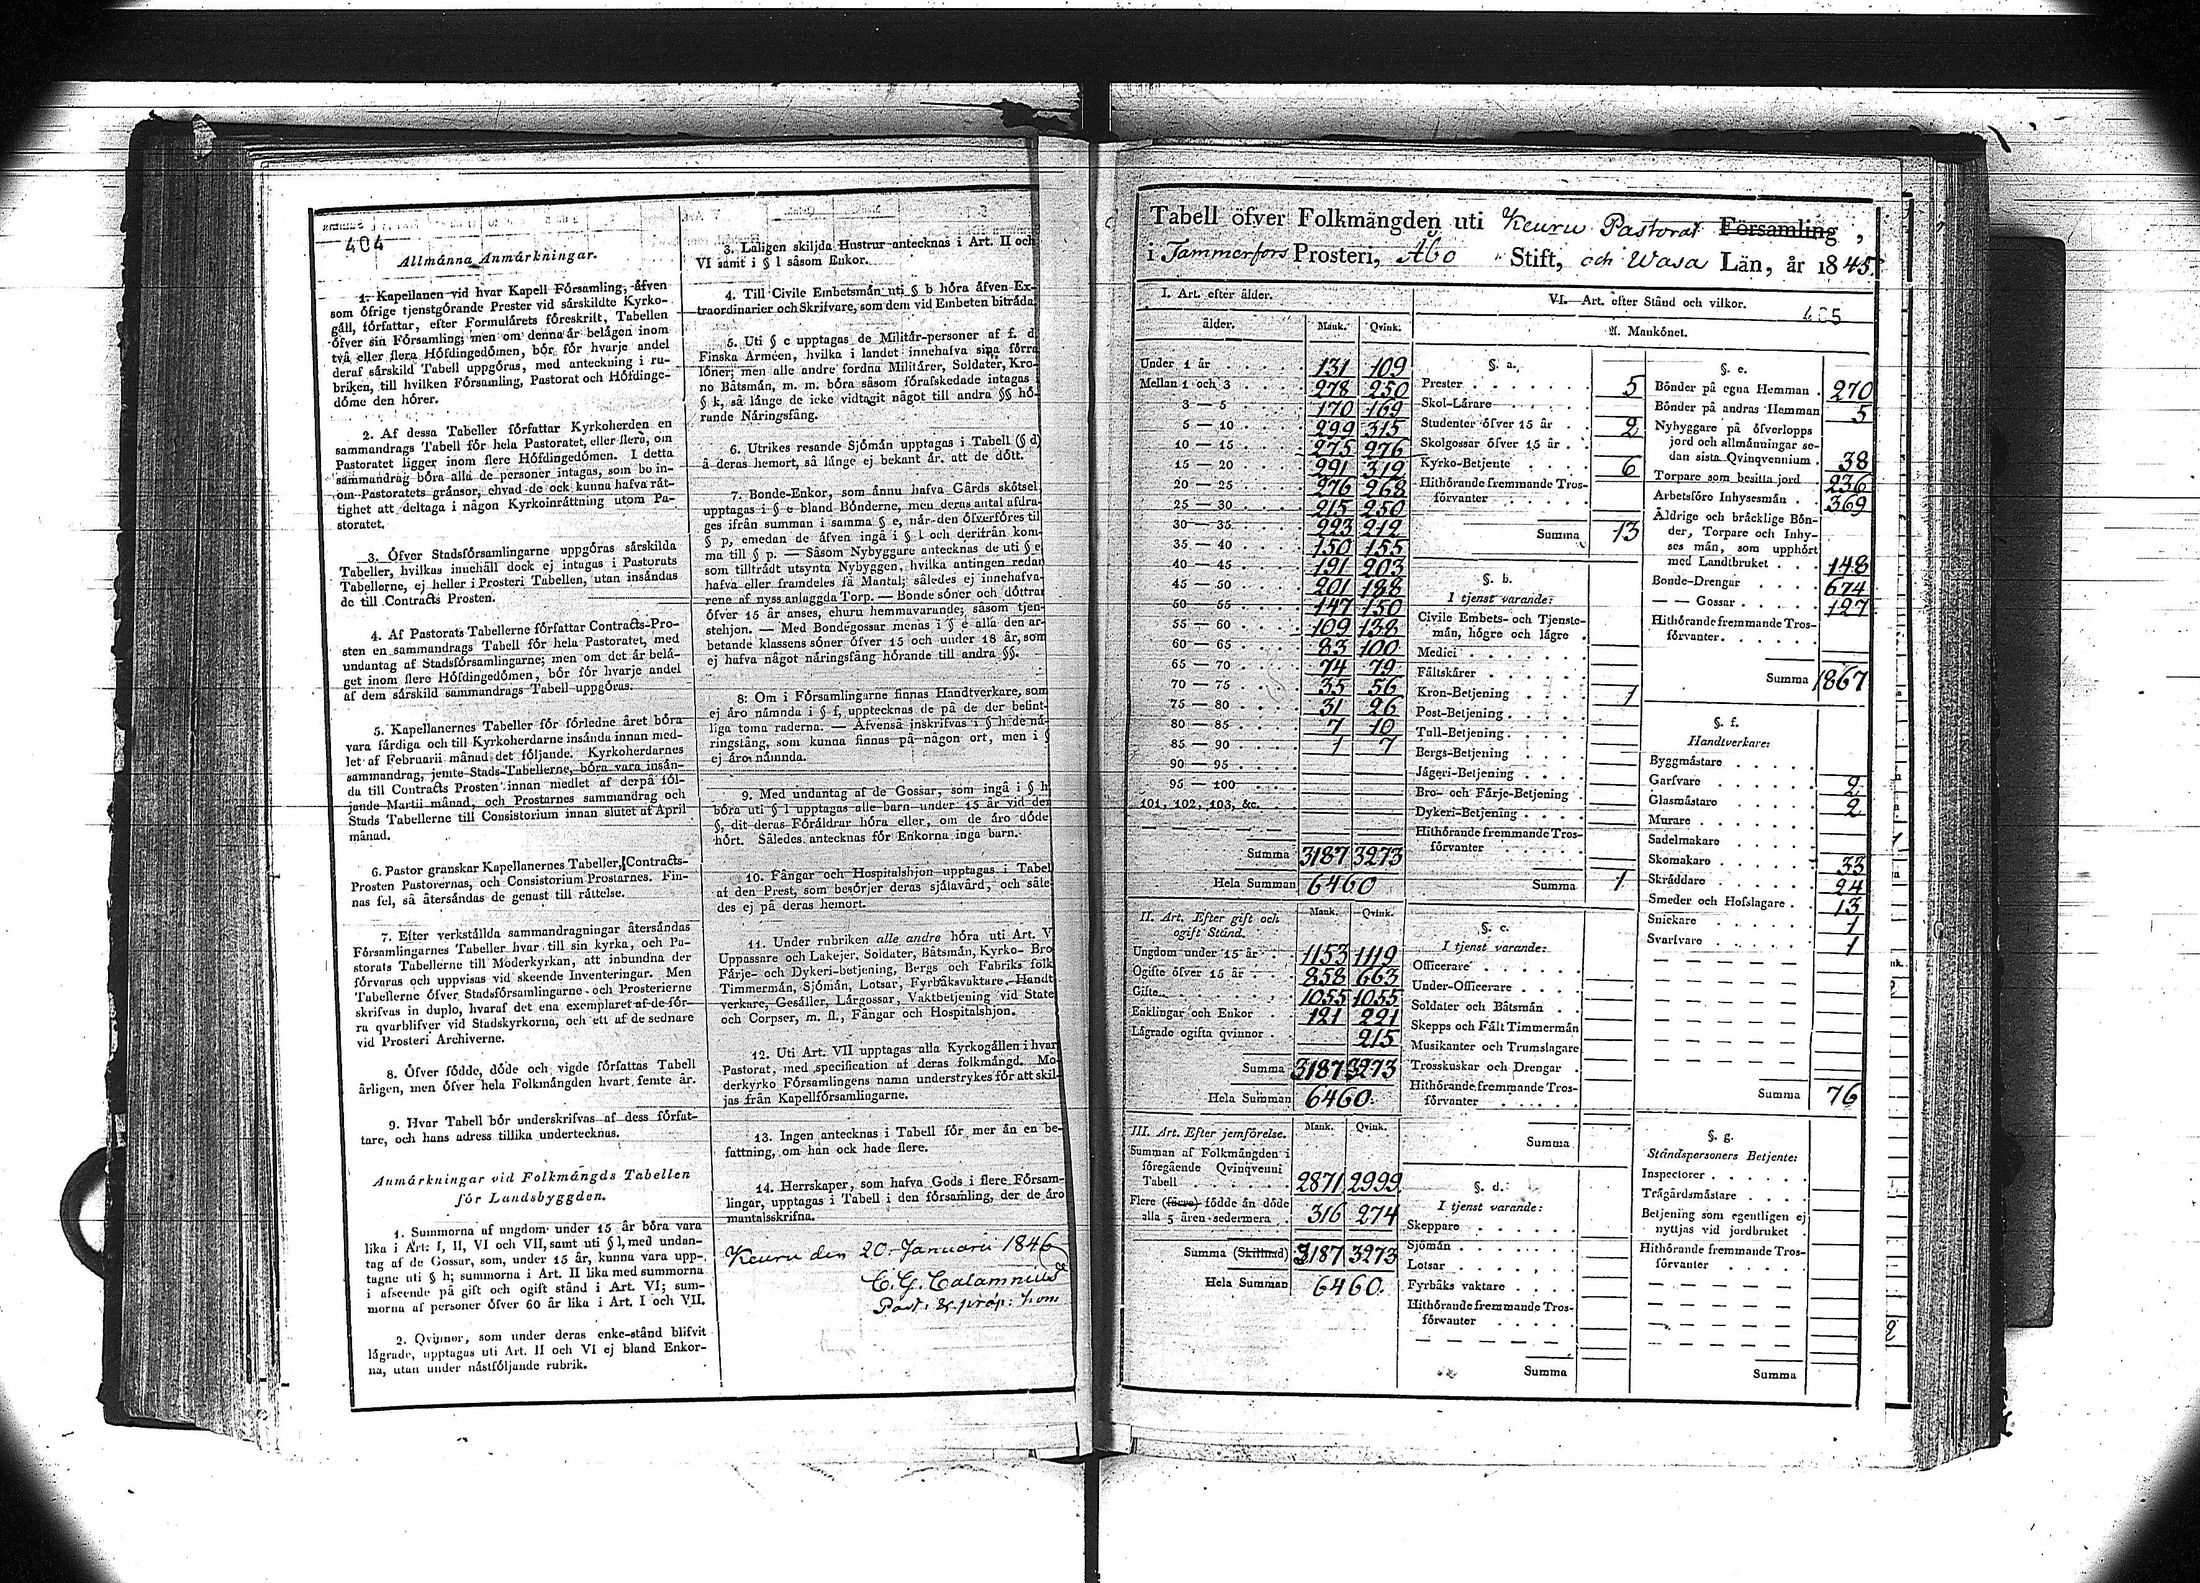 404
Allmänna Anmärkningar.
1. Kapellanen vid hvar Kapell Församling, äfven
som öfrige tjenstgörande Prester vid särskildte Kyrko-
gäll, författar, efter Formulärets föreskrift, Tabellen
öfver sin Församling; men om denna är belägen inom
två eller flera Höfdingedömen, bör för hvarje andel
deraf särskild Tabell uppgöras, med anteckning i ru-
briken, till hvilken Församling, Pastorat och Höfdinge-
döme den hörer.
2. Af dessa Tabeller författar Kyrkoherden en
sammandrags Tabell för hela Pastoratet, eller flera, om
Pastoratet ligger inom flere Höfdingedömen. I detta
sammandrag böra alla de personer intagas, som bo in-
om Pastoratets gränsor, ehvad de ock kunna hafva rät-
tighet att deltaga i någon Kyrkoinrättning utom Pa-
storatet.
3. Öfver Stadsförsamlingarne uppgöras särskilda
Tabeller, hvilkas innehåll dock ej intagas i Pastorats
Tabellerne, ej heller i Prosteri Tabellen, utan insändas
de till Contracts Prosten.
4. Af Pastorats Tabellerne författar Contracts-Pro-
sten en sammandrags Tabell för hela Pastoratet, med
undantag af Stadsförsamlingarne; men om det är belä-
get inom flere Höfdingedömen, bör för hvarje andel
af dem särskild sammandrags Tabell uppgöras.
5. Kapellanernes Tabeller för förledne året böra
vara färdiga och till Kyrkoherdarne insända innan med-
let af Februarii månad det följande. Kyrkoherdarnes
sammandrag, jemte Stads-Tabellerne, böra vara insän-
da till Contracts Prosten innan medlet af derpå föl-
jande Martii månad, och Prostarnes sammandrag och
Stads Tabellerne till Consistorium innan slutet af April
månad.
6. Pastor granskar Kapellanernes Tabeller, Contracts-
Prosten Pastorernas, och Consistorium Prostarnes. Fin-
nas fel, så återsändas de genast till rättelse.
7. Efter verkställda sammandragningar återsändas
Församlingarnes Tabeller hvar till sin kyrka, och Pa-
storats Tabellerne till Moderkyrkan, att inbundna der
förvaras och uppvisas vid skeende Inventeringar. Men
Tabellerne öfver Stadsförsamlingarne och Prosterierne
skrifvas in duplo, hvaraf det ena exemplaret af de för-
ra qvarblifver vid Stadskyrkorna, och ett af de sednare
vid Prosteri Archiverne.
8. Öfver födde, döde och vigde författas Tabell
årligen, men öfver hela Folkmängden hvart femte år.
9. Hvar Tabell bör underskrifvas af dess förfat-
tare, och hans adress tillika undertecknas.
Anmärkningar vid Folkmängds Tabellen
för Landsbyggden.
1. Summorna af ungdom under 15 år böra vara
lika i Art: I, II, VI och VII, samt uti § l, med undan-
tag af de Gossar, som, under 15 år, kunna vara upp-
tagne uti § h; summorna i Art. II lika med summorna
i afseende på gift och ogift stånd i Art. VI; sum-
morna af personer öfver 60 år lika i Art. I och VII.
2. Qvinnor, som under deras enke-stånd blifvit
lägrade, upptagas uti Art. II och VI ej bland Enkor-
na, utan under nästföljande rubrik.
3. Laligen skiljda Hustrur antecknas i Art. II och
VI samt i § l såsom Enkor.
4. Till Civile Embetsmän uti § b höra äfven Ex-
traordinarier och Skrifvare, som dem vid Embeten biträda.
5. Uti § c upptagas de Militär-personer af f. d.
Finska Arméen, hvilka i landet innehafva sina förra
löner; men alle andre fordna Militärer, Soldater, Kro-
no Båtsmän, m. m. böra såsom förafskedade intagas i
§ k, så länge de icke vidtagit något till andra §§ hö-
rande Näringsfång.
6. Utrikes resande Sjömän upptagas i Tabell (§ d)
å deras hemort, så länge ej bekant är, att de dött.
7. Bonde-Enkor, som ännu hafva Gårds skötsel,
upptagas i § e bland Bönderne, men deras antal afdra-
ges ifrån summan i samma § e, när den öfverföres till
§ p, emedan de äfven ingå i § l och derifrån kom-
ma till § p. — Såsom Nybyggare antecknas de uti § e
som tillträdt utsynta Nybyggen, hvilka antingen redan
hafva eller framdeles få Mantal; således ej innehafva-
rene af nyss anlaggda Torp. — Bonde söner och döttrar
öfver 15 år anses, ehuru hemmavarande, såsom tjen-
stehjon. — Med Bondegossar menas i § e alla den ar-
betande klassens söner öfver 15 och under 18 år, som
ej hafva något näringsfång hörande till andra §§.
8. Om i Församlingarne finnas Handtverkare, som
ej äro nämnda i § f, upptecknas de på de der befint-
liga toma raderna. — Äfvenså inskrifvas i § h de nä-
ringsfång, som kunna finnas på någon ort, men i §
ej äro nämnda.
9. Med undantag af de Gossar, som ingå i § h
böra uti § l upptagas alle barn under 15 år vid den
§, dit deras Föräldrar höra eller, om de äro döde
hört. Således antecknas för Enkorna inga barn.
10. Fångar och Hospitalshjon upptagas i Tabel
af den Prest, som besörjer deras själavård, och såle-
des ej på deras hemort.
11. Under rubriken alle andre höra uti Art. V
Uppassare och Lakejer, Soldater, Båtsmän, Kyrko- Bro
Färje- och Dykeri-betjening, Bergs och Fabriks folk
Timmermän, Sjömän, Lotsar, Fyrbåksvaktare, Handt
verkare, Gesäller, Lärgossar, Vaktbetjening vid State
och Corpser, m. fl., Fångar och Hospitalshjon.
12. Uti Art. VII upptagas alla Kyrkogällen i hvar
Pastorat, med specification af deras folkmängd. Mo-
derkyrko Församlingens namn understrykes för att skil-
jas från Kapellförsamlingarne.
13. Ingen antecknas i Tabell för mer än en be-
fattning, om han ock hade flere.
14. Herrskaper, som hafva Gods i flere Försam-
lingar, upptagas i Tabell i den församling, der de äro
mantalsskrifna.
Keuru den 20 Januarii 1846
C. G. Calamnius
Past. & præp: hon
Tabell öfver Folkmängden uti Keuru Pastorat Församling,
i Tammerfors Prosteri, Åbo Stift, och Wasa Län, år 1845.
405
I. Art. efter ålder.
ålder. Mank. Qvink.
Under 1 år 131 109
Mellan 1 och 3 278 250
3 — 5 170 169
5 — 10 299 315
10 — 15 275 276
15 — 20 291 312
20 — 25 276 268
25 — 30 215 250
30 — 35 223 212
35 — 40 150 155
40 — 45 191 203
45 — 50 201 188
50 — 55 147 150
55 — 60 109 138
60 — 65 83 100
65 — 70 74 79
70 — 75 35 56
75 — 80 31 26
80 — 85 7 10
85 — 90 1 7
90 — 95
95 — 100
101, 102, 103, &c.
Summa 3187 3273
Hela Summan 6460
II. Art. Efter gift och
ogift Stånd. Mank. Qvink.
Ungdom under 15 år 1153 1119
Ogifte öfver 15 år 858 663
Gifte 1055 1055
Enklingar och Enkor 121 221
Lägrade ogifta qvinnor 215
Summa 3187 3273
Hela Summan 6460.
III. Art. Efter jemförelse. Mank. Qvink.
Summan af Folkmängden i
föregående Qvinqvenni
Tabell 2871 2999
Flere (färre) födde än döde
alla 5 åren sedermera 316 274
Summa (Skillnad) 3187 3273
Hela Summan 6460.
VI. Art. efter Stånd och vilkor.
A. Mankönet.
§. a.
Prester 5
Skol-Lärare
Studenter öfver 15 år 2
Skolgossar öfver 15 år
Kyrko-Betjente 6
Hithörande fremmande Tros-
förvanter
Summa 13
§. b.
I tjenst varande:
Civile Embets- och Tjenste-
män, högre och lägre
Medici
Fältskärer
Kron-Betjening 1
Post-Betjening
Tull-Betjening
Bergs-Betjening
Jägeri-Betjening
Bro- och Färje-Betjening
Dykeri-Betjening
Hithörande fremmande Tros-
förvanter
Summa 1
§. c.
I tjenst varande:
Officerare
Under-Officerare
Soldater och Båtsmän
Skepps och Fält Timmermän
Musikanter och Trumslagare
Trosskuskar och Drengar
Hithörande fremmande Tros-
förvanter
Summa
§. d.
I tjenst varande:
Skeppare
Sjömän
Lotsar
Fyrbåks vaktare
Hithörande fremmande Tros-
förvanter
Summa
§. e.
Bönder på egna Hemman 270
Bönder på andras Hemman 5
Nybyggare på öfverlopps
jord och allmänningar se-
dan sista Qvinqvennium 38
Torpare som besitta jord 236
Arbetsföre Inhysesmän 369
Äldrige och bräcklige Bön-
der, Torpare och Inhy-
ses män, som upphört
med Landtbruket 148
Bonde-Drengar 674
— — Gossar 127
Hithörande fremmande Tros-
förvanter
Summa 1867
§. f.
Handtverkare:
Byggmästare
Garfvare 2
Glasmästare 2
Murare
Sadelmakare
Skomakare 33
Skräddare 24
Smeder och Hofslagare 13
Snickare 1
Svarfvare 1
Summa 76
§. g.
Ståndspersoners Betjente:
Inspectorer
Trägårdsmästare
Betjening som egentligen ej
nyttjas vid jordbruket
Hithörande fremmande Tros-
förvanter
Summa